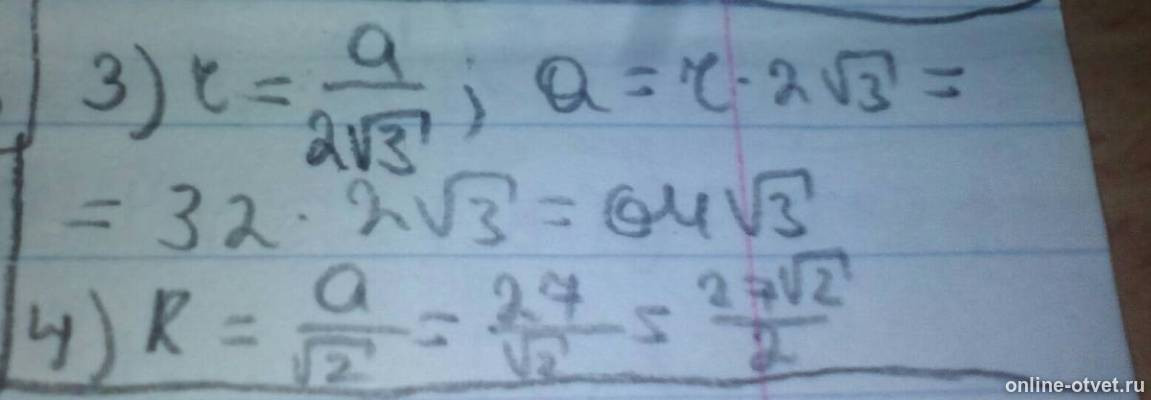 3) r = a/2√3 ; a = r · 2√3 =
= 32 · 2√3 = 64√3
4) R = a/√2 = 27/√2 = 27√2/2
online-otvet.ru